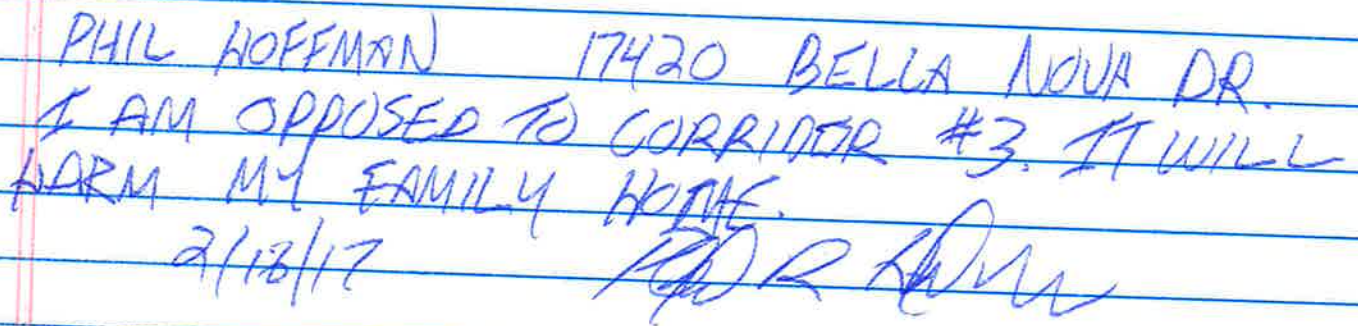 PHIL HOFFMAN 17420 BELLA NOVA DR.
I AM OPPOSED TO CORRIDOR #3. IT WILL
HARM MY FAMILY HOME.
2/18/17